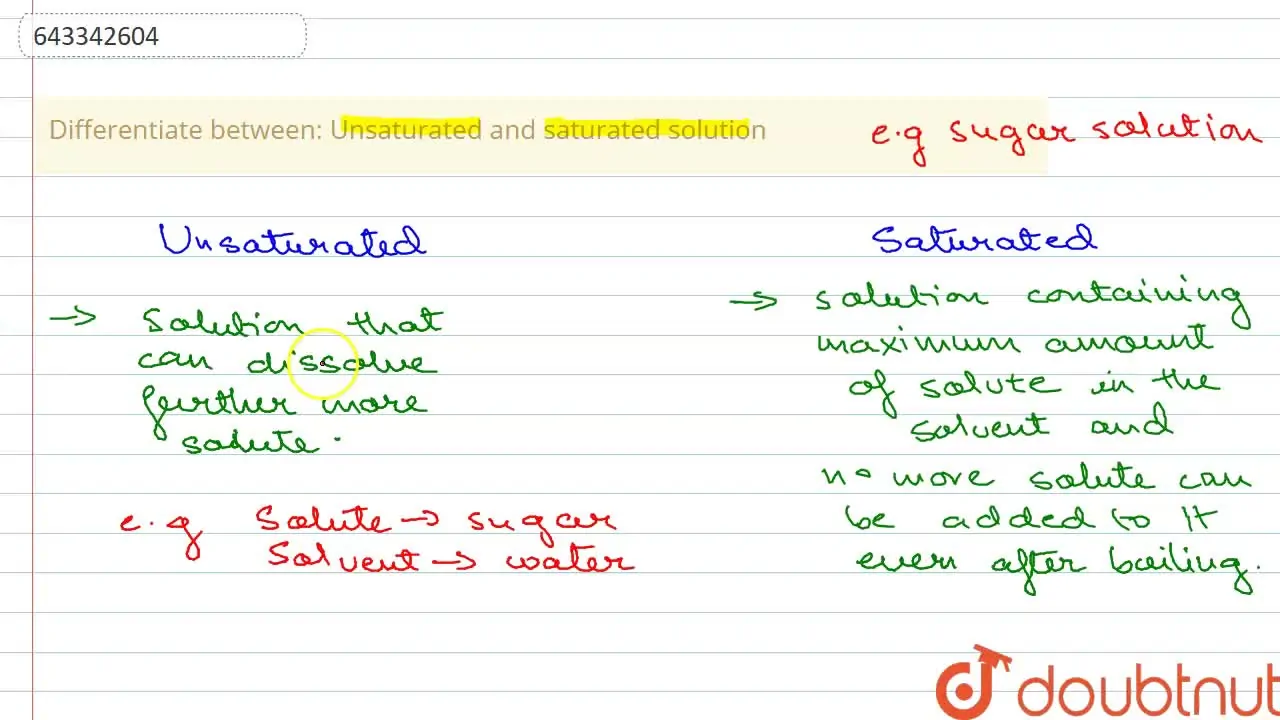 643342604
Differentiate between: Unsaturated and saturated solution
e.g sugar solution
Unsaturated
→ Solution that
can dissolve
further more
solute.
e.g Solute → sugar
Solvent → water
Saturated
→ solution containing
maximum amount
of solute in the
solvent and
no more solute can
be added to it
even after boiling.
doubtnut